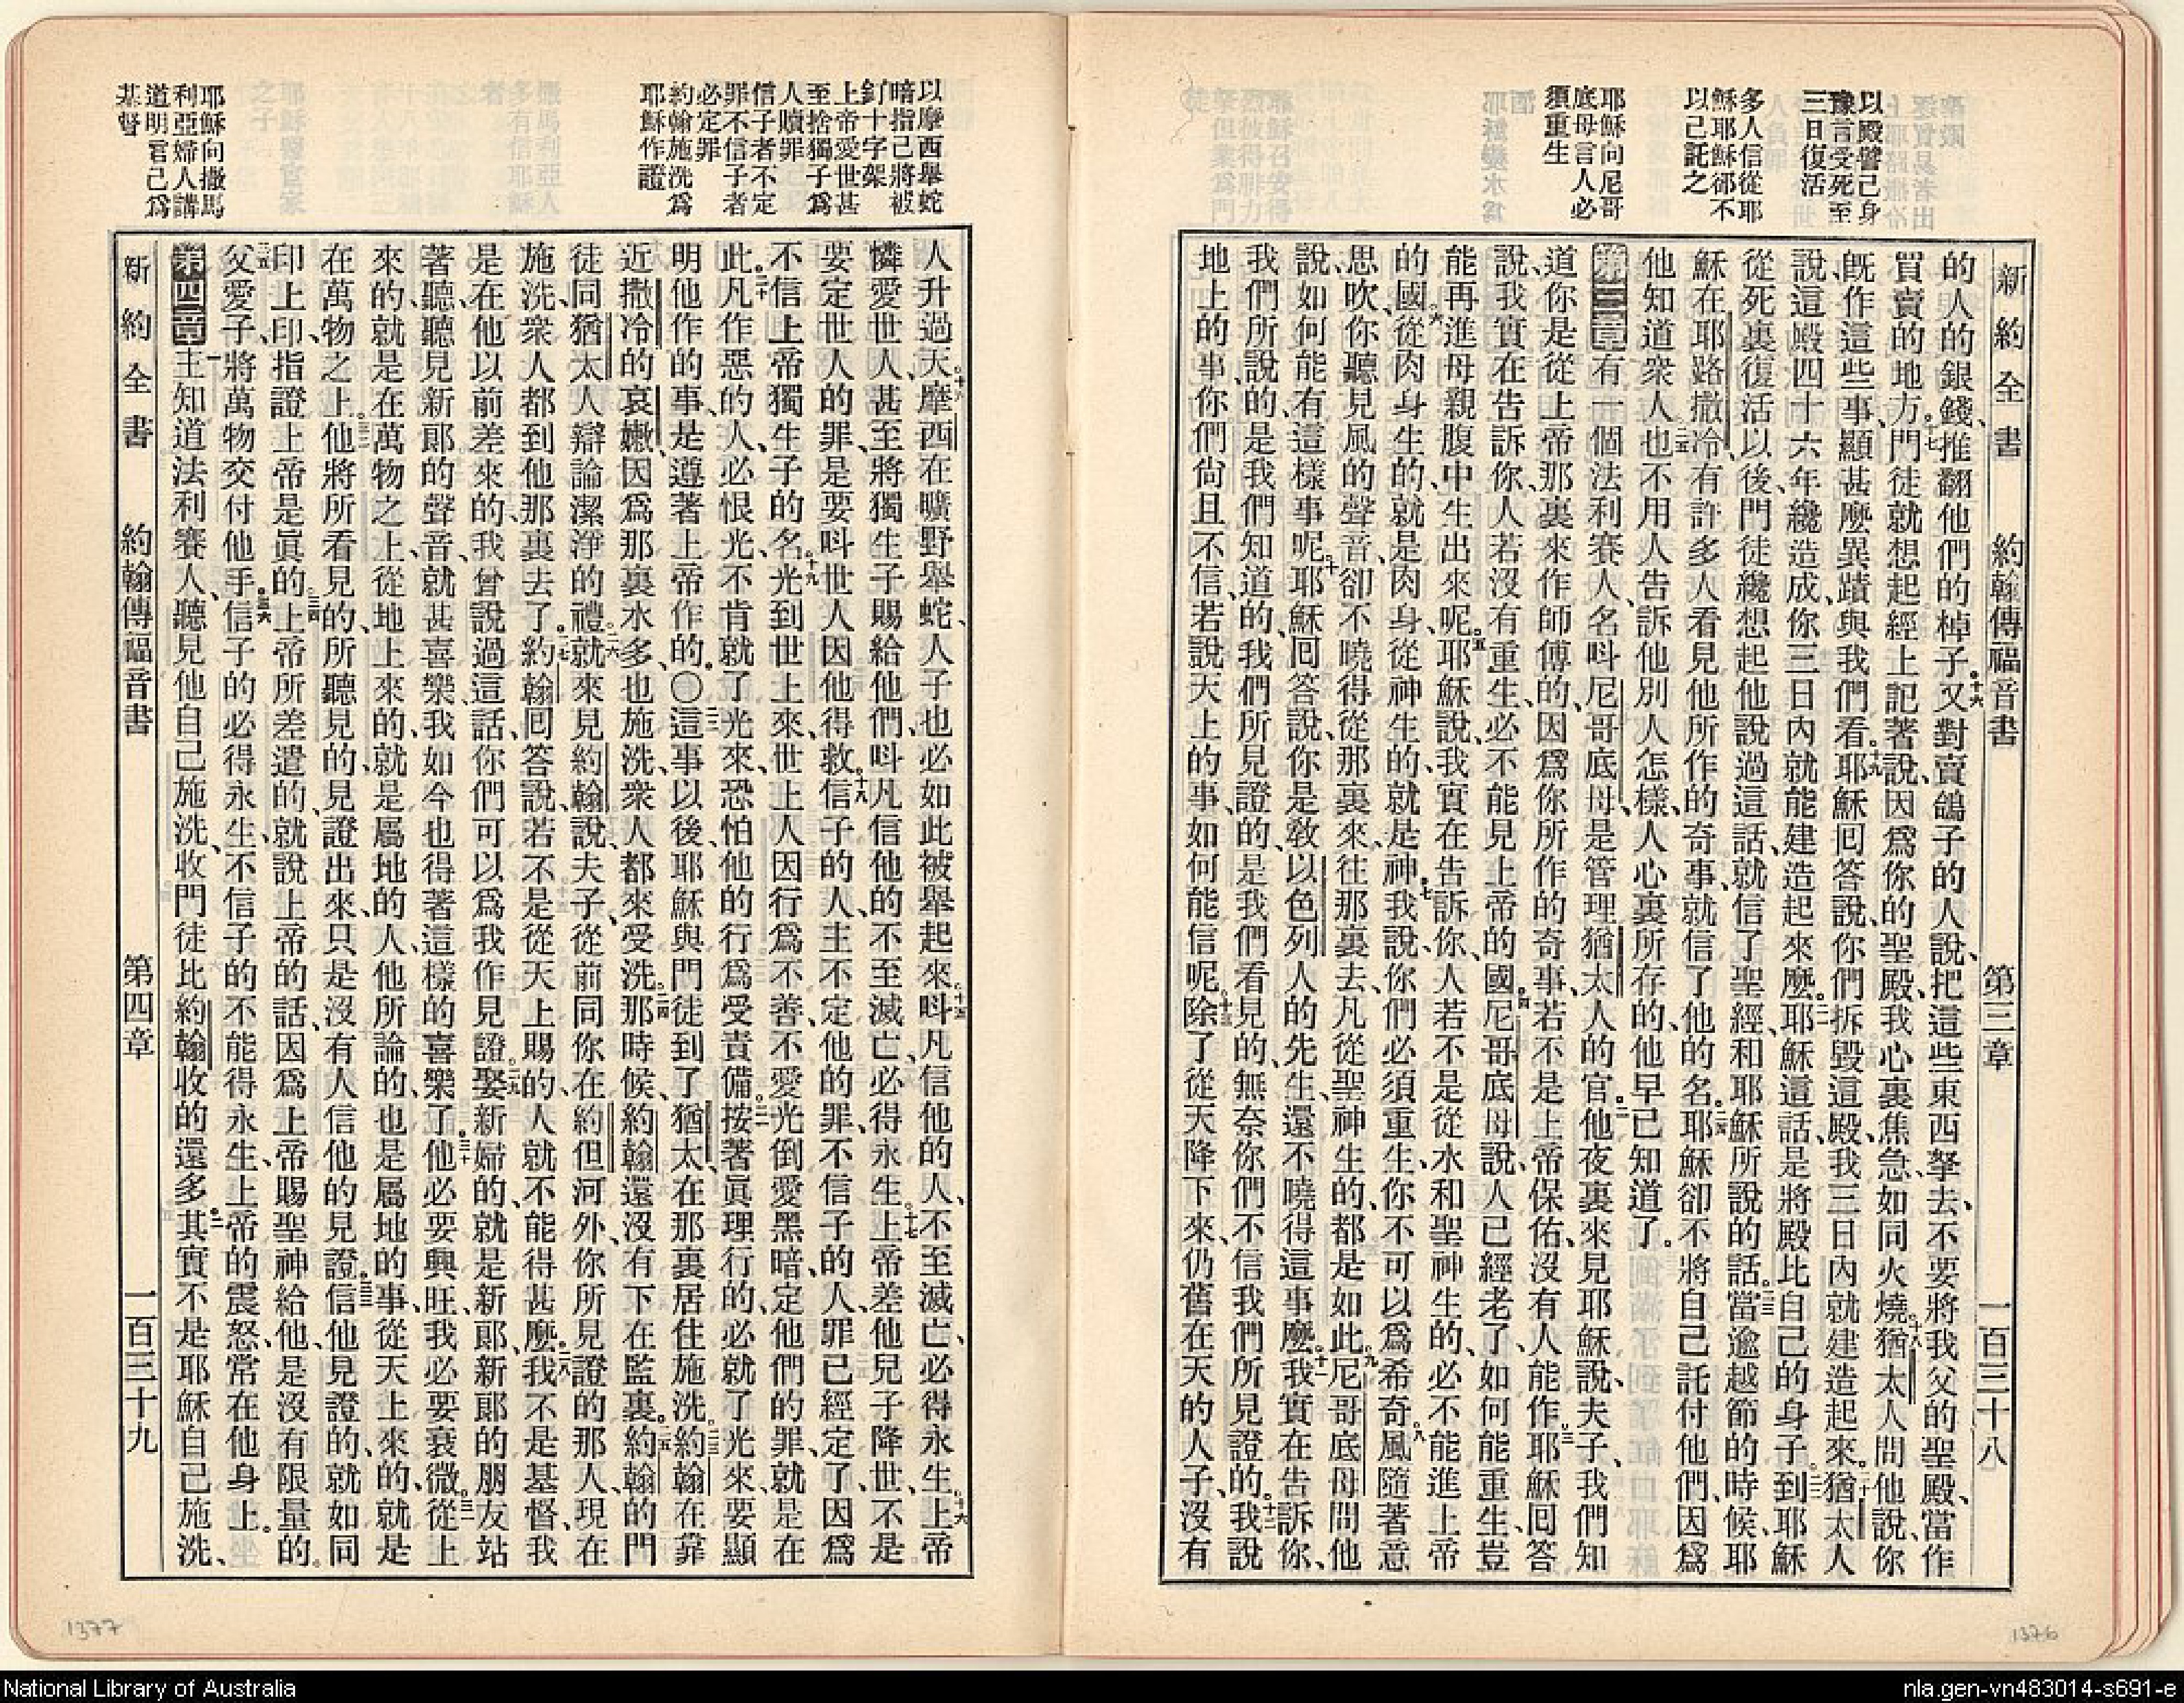 以殿譬己身
豫言受死至
三日復活
多人信從耶
穌耶穌卻不
以己託之
耶穌向尼哥
底母言人必
須重生
新約全書 約翰傳福音書 第三章 一百三十八
的人的銀錢、推翻他們的棹子。十六又對賣鴿子的人說、把這些東西拏去、不要將我父的聖殿、當作
買賣的地方。十七門徒就想起經上記著說、因爲你的聖殿、我心裏焦急、如同火燒。十八猶太人問他說、你
既作這些事、顯甚麽異蹟與我們看。十九耶穌回答說、你們拆毀這殿、我三日內就建造起來。二十猶太人
說、這殿四十六年纔造成、你三日內就能建造起來麽。二一耶穌這話、是將殿比自己的身子。二二到耶穌
從死裏復活以後、門徒纔想起他說過這話、就信了聖經、和耶穌所說的話。二三當逾越節的時候、耶
穌在耶路撒冷、有許多人看見他所作的奇事、就信了他的名。二四耶穌卻不將自己託付他們、因爲
他知道衆人。二五也不用人告訴他別人怎樣、人心裏所存的、他早已知道了。
第三章 有一個法利賽人、名呌尼哥底母、是管理猶太人的官。二他夜裏來見耶穌說、夫子、我們知
道你是從上帝那裏來作師傅的、因爲你所作的奇事、若不是上帝保佑、沒有人能作。三耶穌回答
說、我實在告訴你、人若沒有重生、必不能見上帝的國。四尼哥底母說、人已經老了、如何能重生、豈
能再進母親腹中生出來呢。五耶穌說、我實在告訴你、人若不是從水和聖神生的、必不能進上帝
的國。六從肉身生的、就是肉身、從神生的、就是神。七我說、你們必須重生、你不可以爲希奇。八風隨著意
思吹、你聽見風的聲音、卻不曉得從那裏來、往那裏去、凡從聖神生的、都是如此。九尼哥底母問他
說、如何能有這樣事呢。十耶穌回答說、你是敎以色列人的先生、還不曉得這事麽。十一我實在告訴你、
我們所說的、是我們知道的、我們所見證的、是我們看見的、無奈你們不信我們所見證的。十二我說
地上的事、你們尚且不信、若說天上的事、如何能信呢。十三除了從天降下來、仍舊在天的人子、沒有
以摩西舉蛇
暗指己將被
釘十字架
上帝愛世甚
至捨獨子爲
人贖罪
信子者不定
罪不信子者
必定罪
約翰施洗爲
耶穌作證
耶穌向撒馬
利亞婦人講
道明言己爲
基督
人升過天。十四摩西在曠野舉蛇、人子也必如此被舉起來。十五呌凡信他的人、不至滅亡、必得永生。十六上帝
憐愛世人、甚至將獨生子賜給他們、呌凡信他的、不至滅亡、必得永生。十七上帝差他兒子降世、不是
要定世人的罪、是要呌世人因他得救。十八信子的人、主不定他的罪、不信子的人、罪已經定了、因爲
不信上帝獨生子的名。十九光到世上來、世上人因行爲不善、不愛光倒愛黑暗、定他們的罪、就是在
此。二十凡作惡的人、必恨光、不肯就了光來、恐怕他的行爲受責備。二一按著眞理行的、必就了光來、要顯
明他作的事、是遵著上帝作的。〇二二這事以後、耶穌與門徒到了猶太、在那裏居住施洗。二三約翰在靠
近撒冷的哀嫩、因爲那裏水多、也施洗、衆人都來受洗。二四那時候約翰還沒有下在監裏。二五約翰的門
徒、同猶太人辯論潔淨的禮。二六就來見約翰說、夫子、從前同你在約但河外、你所見證的那人、現在
施洗、衆人都到他那裏去了。二七約翰回答說、若不是從天上賜的、人就不能得甚麽。二八我不是基督、我
是在他以前差來的、我曾說過這話、你們可以爲我作見證。二九娶新婦的、就是新郎、新郎的朋友站
著聽、聽見新郎的聲音、就甚喜樂、我如今也得著這樣的喜樂了。三十他必要興旺、我必要衰微。三一從上
來的、就是在萬物之上、從地上來的、就是屬地的人、他所論的也是屬地的事、從天上來的、就是
在萬物之上。三二他將所看見的、所聽見的、見證出來、只是沒有人信他的見證。三三信他見證的、就如同
印上印、指證上帝是眞的。三四上帝所差遣的、就說上帝的話、因爲上帝賜聖神給他、是沒有限量的。
三五父愛子、將萬物交付他手。三六信子的必得永生、不信子的不能得永生、上帝的震怒、常在他身上。
第四章 一主知道法利賽人、聽見他自己施洗、收門徒比約翰收的還多。二其實不是耶穌自己施洗、
新約全書 約翰傳福音書 第四章 一百三十九
1377
1376
National Library of Australia
nla.gen-vn483014-s691-e